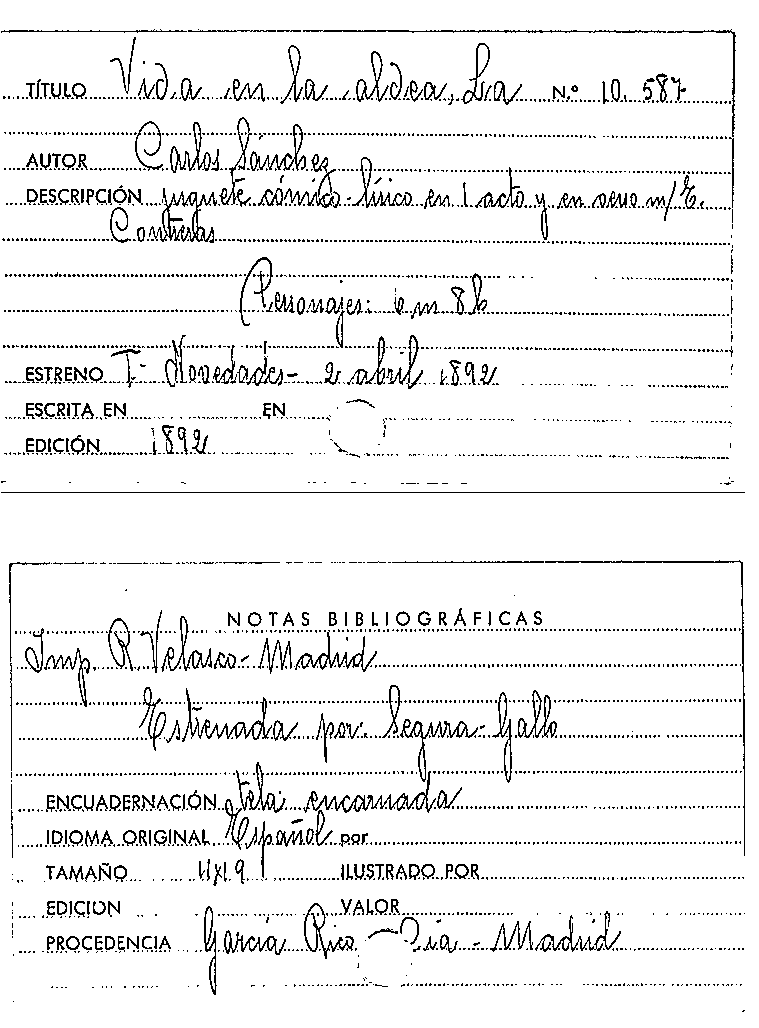 TÍTULO Vida en la aldea, La N.º 10.587
AUTOR Carlos Sánchez
DESCRIPCIÓN juguete cómico-lírico en 1 acto y en verso m/ E.
Contreras
Personajes: 6 m 8 h
ESTRENO T- Novedades- 2 abril 1892
ESCRITA EN EN
EDICIÓN 1892
NOTAS BIBLIOGRÁFICAS
Imp. R Velasco- Madrid
Estrenada por: Segura- Gallo
ENCUADERNACIÓN tela encarnada
IDIOMA ORIGINAL Español por
TAMAÑO 11x19 ILUSTRADO POR
EDICION VALOR
PROCEDENCIA García Rico Cia - Madrid